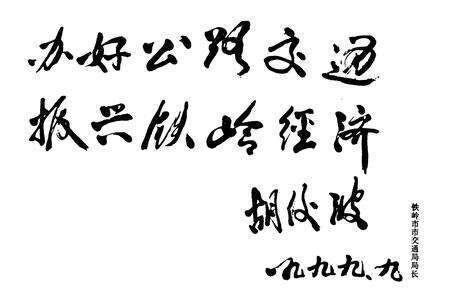 办好公路交通
振兴铁岭經济
胡
铁岭市市交通局局长
一九九九、九